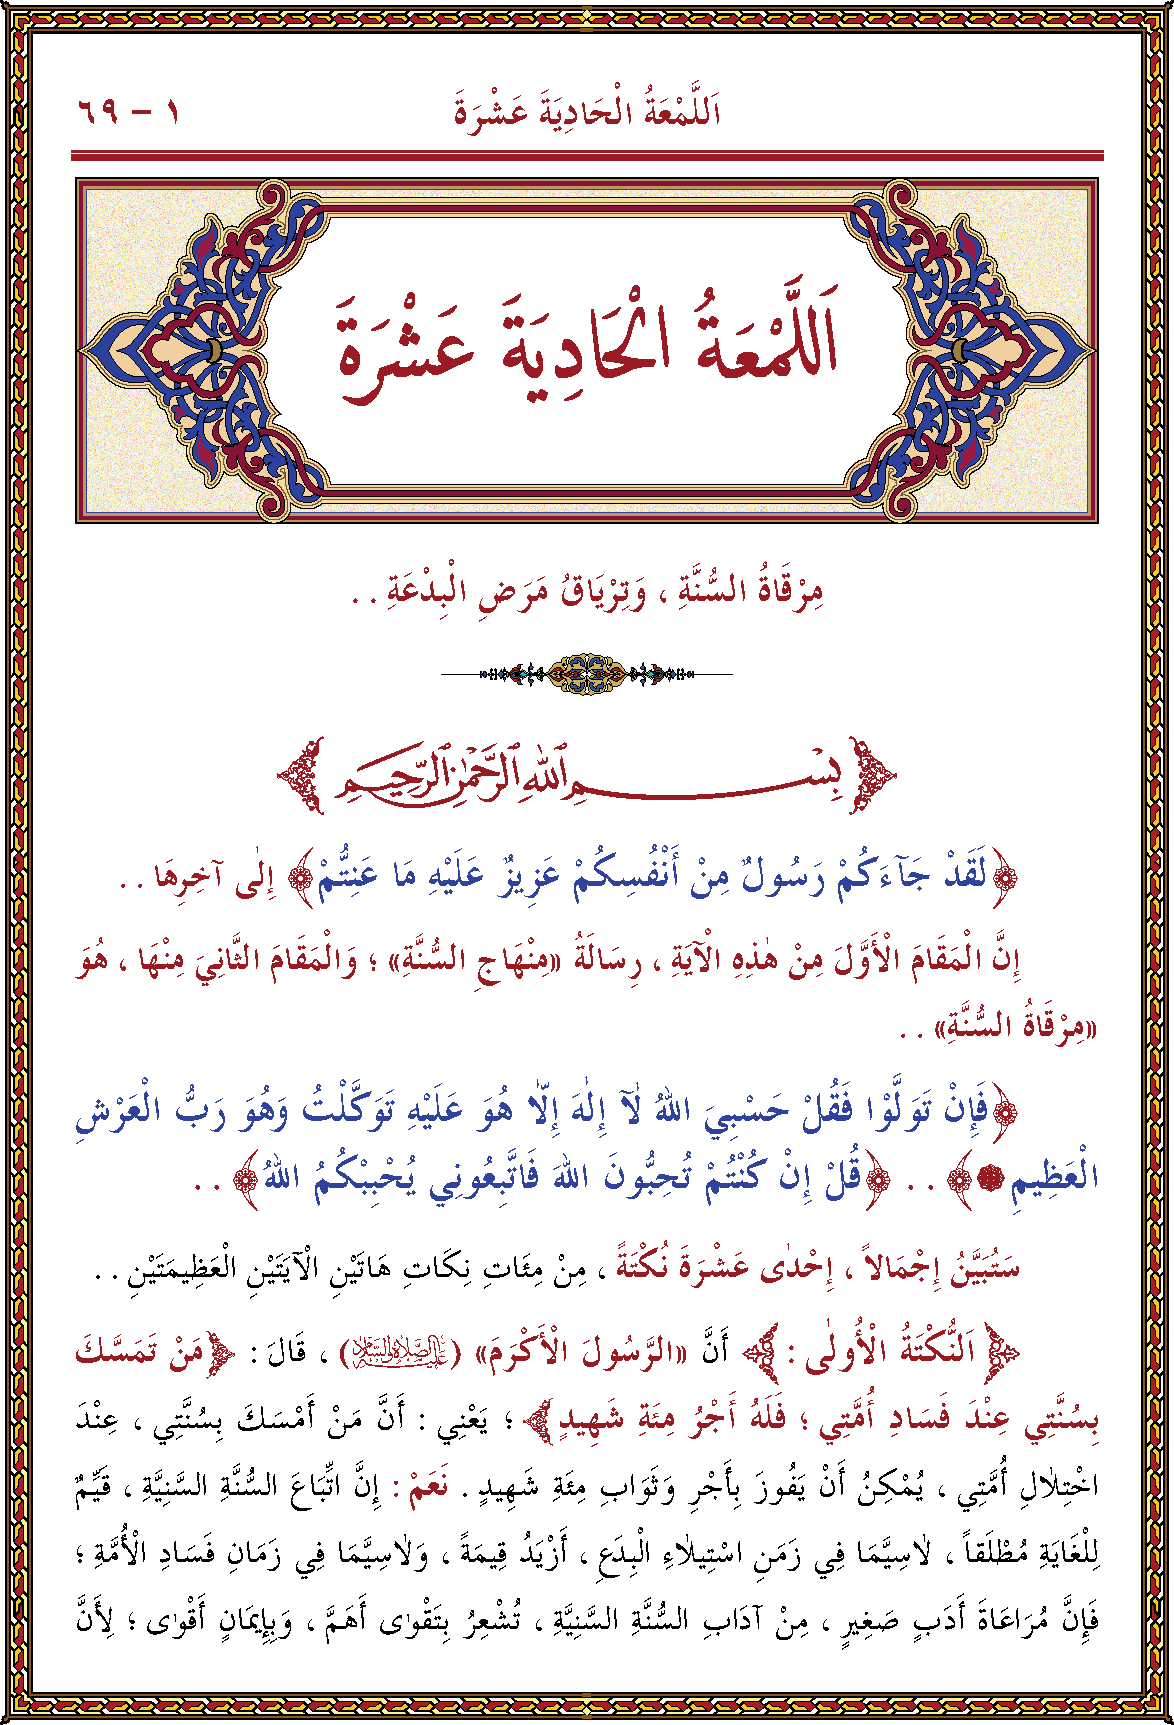 اَللَّمْعَةُ الْحَادِيَةَ عَشْرَةَ ١ - ٦٩
اَللَّمْعَةُ الْحَادِيَةَ عَشْرَةَ
مِرْقَاةُ السُّنَّةِ ، وَتِرْيَاقُ مَرَضِ الْبِدْعَةِ . .
بِسْمِ اللهِ الرَّحْمٰنِ الرَّحِيمِ
﴿لَقَدْ جَآءَكُمْ رَسُولٌ مِنْ أَنْفُسِكُمْ عَزِيزٌ عَلَيْهِ مَا عَنِتُّمْ﴾ إِلٰى آخِرِهَا . .
إِنَّ الْمَقَامَ الْأَوَّلَ مِنْ هٰذِهِ الْآيَةِ ، رِسَالَةُ «مِنْهَاجِ السُّنَّةِ» ؛ وَالْمَقَامَ الثَّانِيَ مِنْهَا ، هُوَ
«مِرْقَاةُ السُّنَّةِ» . .
﴿فَإِنْ تَوَلَّوْا فَقُلْ حَسْبِيَ اللهُ لَآ إِلٰهَ إِلَّا هُوَ عَلَيْهِ تَوَكَّلْتُ وَهُوَ رَبُّ الْعَرْشِ
الْعَظِيمِ﴾ . . ﴿قُلْ إِنْ كُنْتُمْ تُحِبُّونَ اللهَ فَاتَّبِعُونِي يُحْبِبْكُمُ اللهُ﴾ . .
سَتُبَيَّنُ إِجْمَالاً ، إِحْدٰى عَشْرَةَ نُكْتَةً ، مِنْ مِئَاتِ نِكَاتِ هَاتَيْنِ الْآيَتَيْنِ الْعَظِيمَتَيْنِ . .
﴿اَلنُّكْتَةُ الْأُولٰى :﴾ أَنَّ «الرَّسُولَ الْأَكْرَمَ» (عَلَيْهِ الصَّلَاةُ وَالسَّلَامُ) ، قَالَ : ﴿مَنْ تَمَسَّكَ
بِسُنَّتِي عِنْدَ فَسَادِ أُمَّتِي ؛ فَلَهُ أَجْرُ مِئَةِ شَهِيدٍ﴾ ؛ يَعْنِي : أَنَّ مَنْ أَمْسَكَ بِسُنَّتِي ، عِنْدَ
اخْتِلَالِ أُمَّتِي ، يُمْكِنُ أَنْ يَفُوزَ بِأَجْرِ وَثَوَابِ مِئَةِ شَهِيدٍ . نَعَمْ : إِنَّ اتِّبَاعَ السُّنَّةِ السَّنِيَّةِ ، قَيِّمٌ
لِلْغَايَةِ مُطْلَقاً ، لَاسِيَّمَا فِي زَمَنِ اسْتِيلَاءِ الْبِدَعِ ، أَزْيَدُ قِيمَةً ، وَلَاسِيَّمَا فِي زَمَانِ فَسَادِ الْأُمَّةِ ؛
فَإِنَّ مُرَاعَاةَ أَدَبٍ صَغِيرٍ ، مِنْ آدَابِ السُّنَّةِ السَّنِيَّةِ ، تُشْعِرُ بِتَقْوٰى أَهَمَّ ، وَبِإِيمَانٍ أَقْوٰى ؛ لِأَنَّ